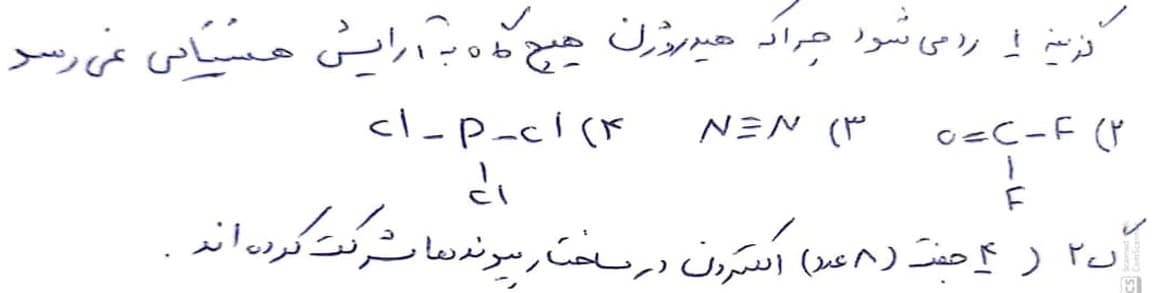 گزینه ۱ رد می شود چرا که هیدروژن هیچ گاه به آرایش هشتایی نمی رسد
۲) O=C-F   ۳) N≡N   ۴) Cl-P-Cl
F   Cl
۴ جفت (۸ عدد) الکترون در ساختار پیوندها شرکت کرده اند .
CS